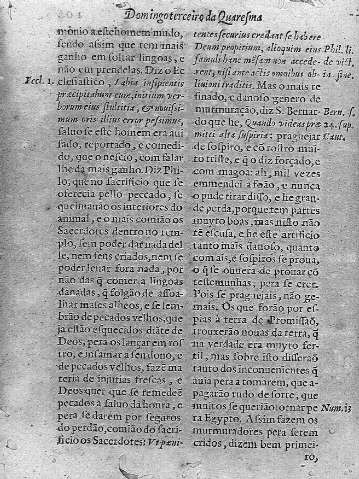 Domingo terceiro da Quaresma
monio a este homem mudo,
sendo assim que tem mais
ganho em soltar lingoas, e
não em prendelas. Diz o Ec
clesiastico, Labia insipientis
Eccl. 1.
præcipitabunt eum, initium ver-
borum eius stultitia, & novissi-
mum oris illius error pessimus,
salvo se este homem era avi
sado, reportado, e comedi-
do, que o nescio, com falar
lhe dá mais ganho. Diz Phi-
lo, que no sacrificio que se
oferecia pello peccado, se
queimavão os interiores do
animal, e o mais comião os
Sacerdotes dentro no tem-
plo, sem poder dar nada del
le, nem seus criados, nem se
poder levar fora nada, por
não das q̃ comer a lingoas
danadas, q̃ folgão de assoa-
lhar males alheos, e se lem-
brão de peccados velhos, que
ja estão esquecidos diãte de
Deos, pera os lançar em ros-
tro, e infamar a seu dono, e
de pecados velhos, fazẽ ma
teria de injurias frescas, e
Deos quer que se remedeẽ
peccados a salvo da honra, e
pera se darem por seguros
do perdão, comião do sacri-
ficio os Sacerdotes: Ut pœni-
tentes securius credant se habere
Deum propitium, alioquin eius
Phil. li.
famuli hanc mensam non
accede-
rent, nisi ante actis omnibus ab
Mas o mais re
finado, e danoso genero de
murmuração, diz S. Bernar-
Bern. s.
do que he, Quando videas præ
24. sup.
mitti alta suspiria: praguejar
Cant.
de sospiro, e cõ rostro mui
to triste, e q̃ o diz forçado, e
com magoa: ah, mil vezes
emmendei a foão, e nunca
o pude tirar disso, e he gran
de perda, porque tem partes
muyto boas, mas nisso não
tẽ escusa, e he este artificio
tanto mais danoso, quanto
com ais, e sospiros se prova,
o q̃ se ouvera de provar cõ
testemunhas, pera se crer.
Pois se praguejais, não ge-
mais. Os que forão por es-
pias á terra de Promissaõ,
trouxerão novas da terra, q̃
na verdade era muyto fer-
til, mas sobre isto disserão
tantos dos inconvenientes q̃
avia pera a tomarem, que a-
pagarão tudo de sorte, que
muitos se queriaõ tornar pe
Num. 13
ra Egypto. Assim fazem os
murmuradores pera serem
cridos, dizem bem primei-
ro,